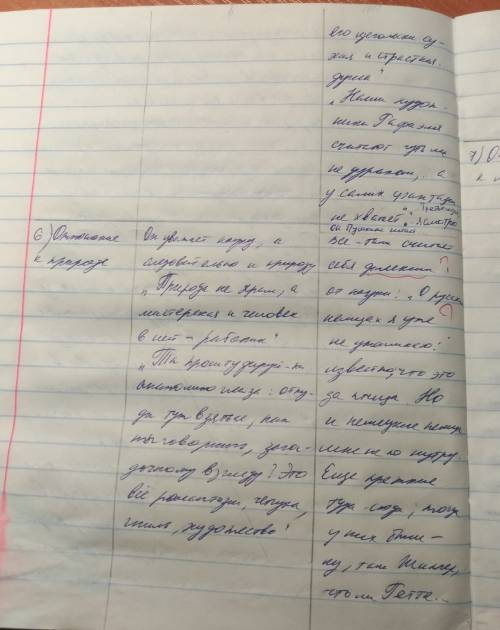 его щегольски су-
хая и страстная
душа"
„Наши худож-
ники Рафаэля
считают чуть ли
не дураком, .. а
у самих фантазии
не хватает".
6) Отношение
к природе
Он уважает науку, а
следовательно и природу
„Природа не храм, а
мастерская и человек
в ней - работник"
„Ты проштудируй-ка
анатомию глаза: отку-
да тут взяться, как
ты говоришь, зага-
дочному взгляду? Это
всё романтизм, чепуха,
гниль, художество"
Всё-таки считает
себя далеким ?
от науки: „О русских
немцах я уже
не упоминаю!"
известно, что это
за птицы. Но
и немецкие немцы
мне не по нутру
Еще прежние
туда-сюда; тогда
у них были -
ну, там Шиллер,
что ли Гетте...
7) О
к